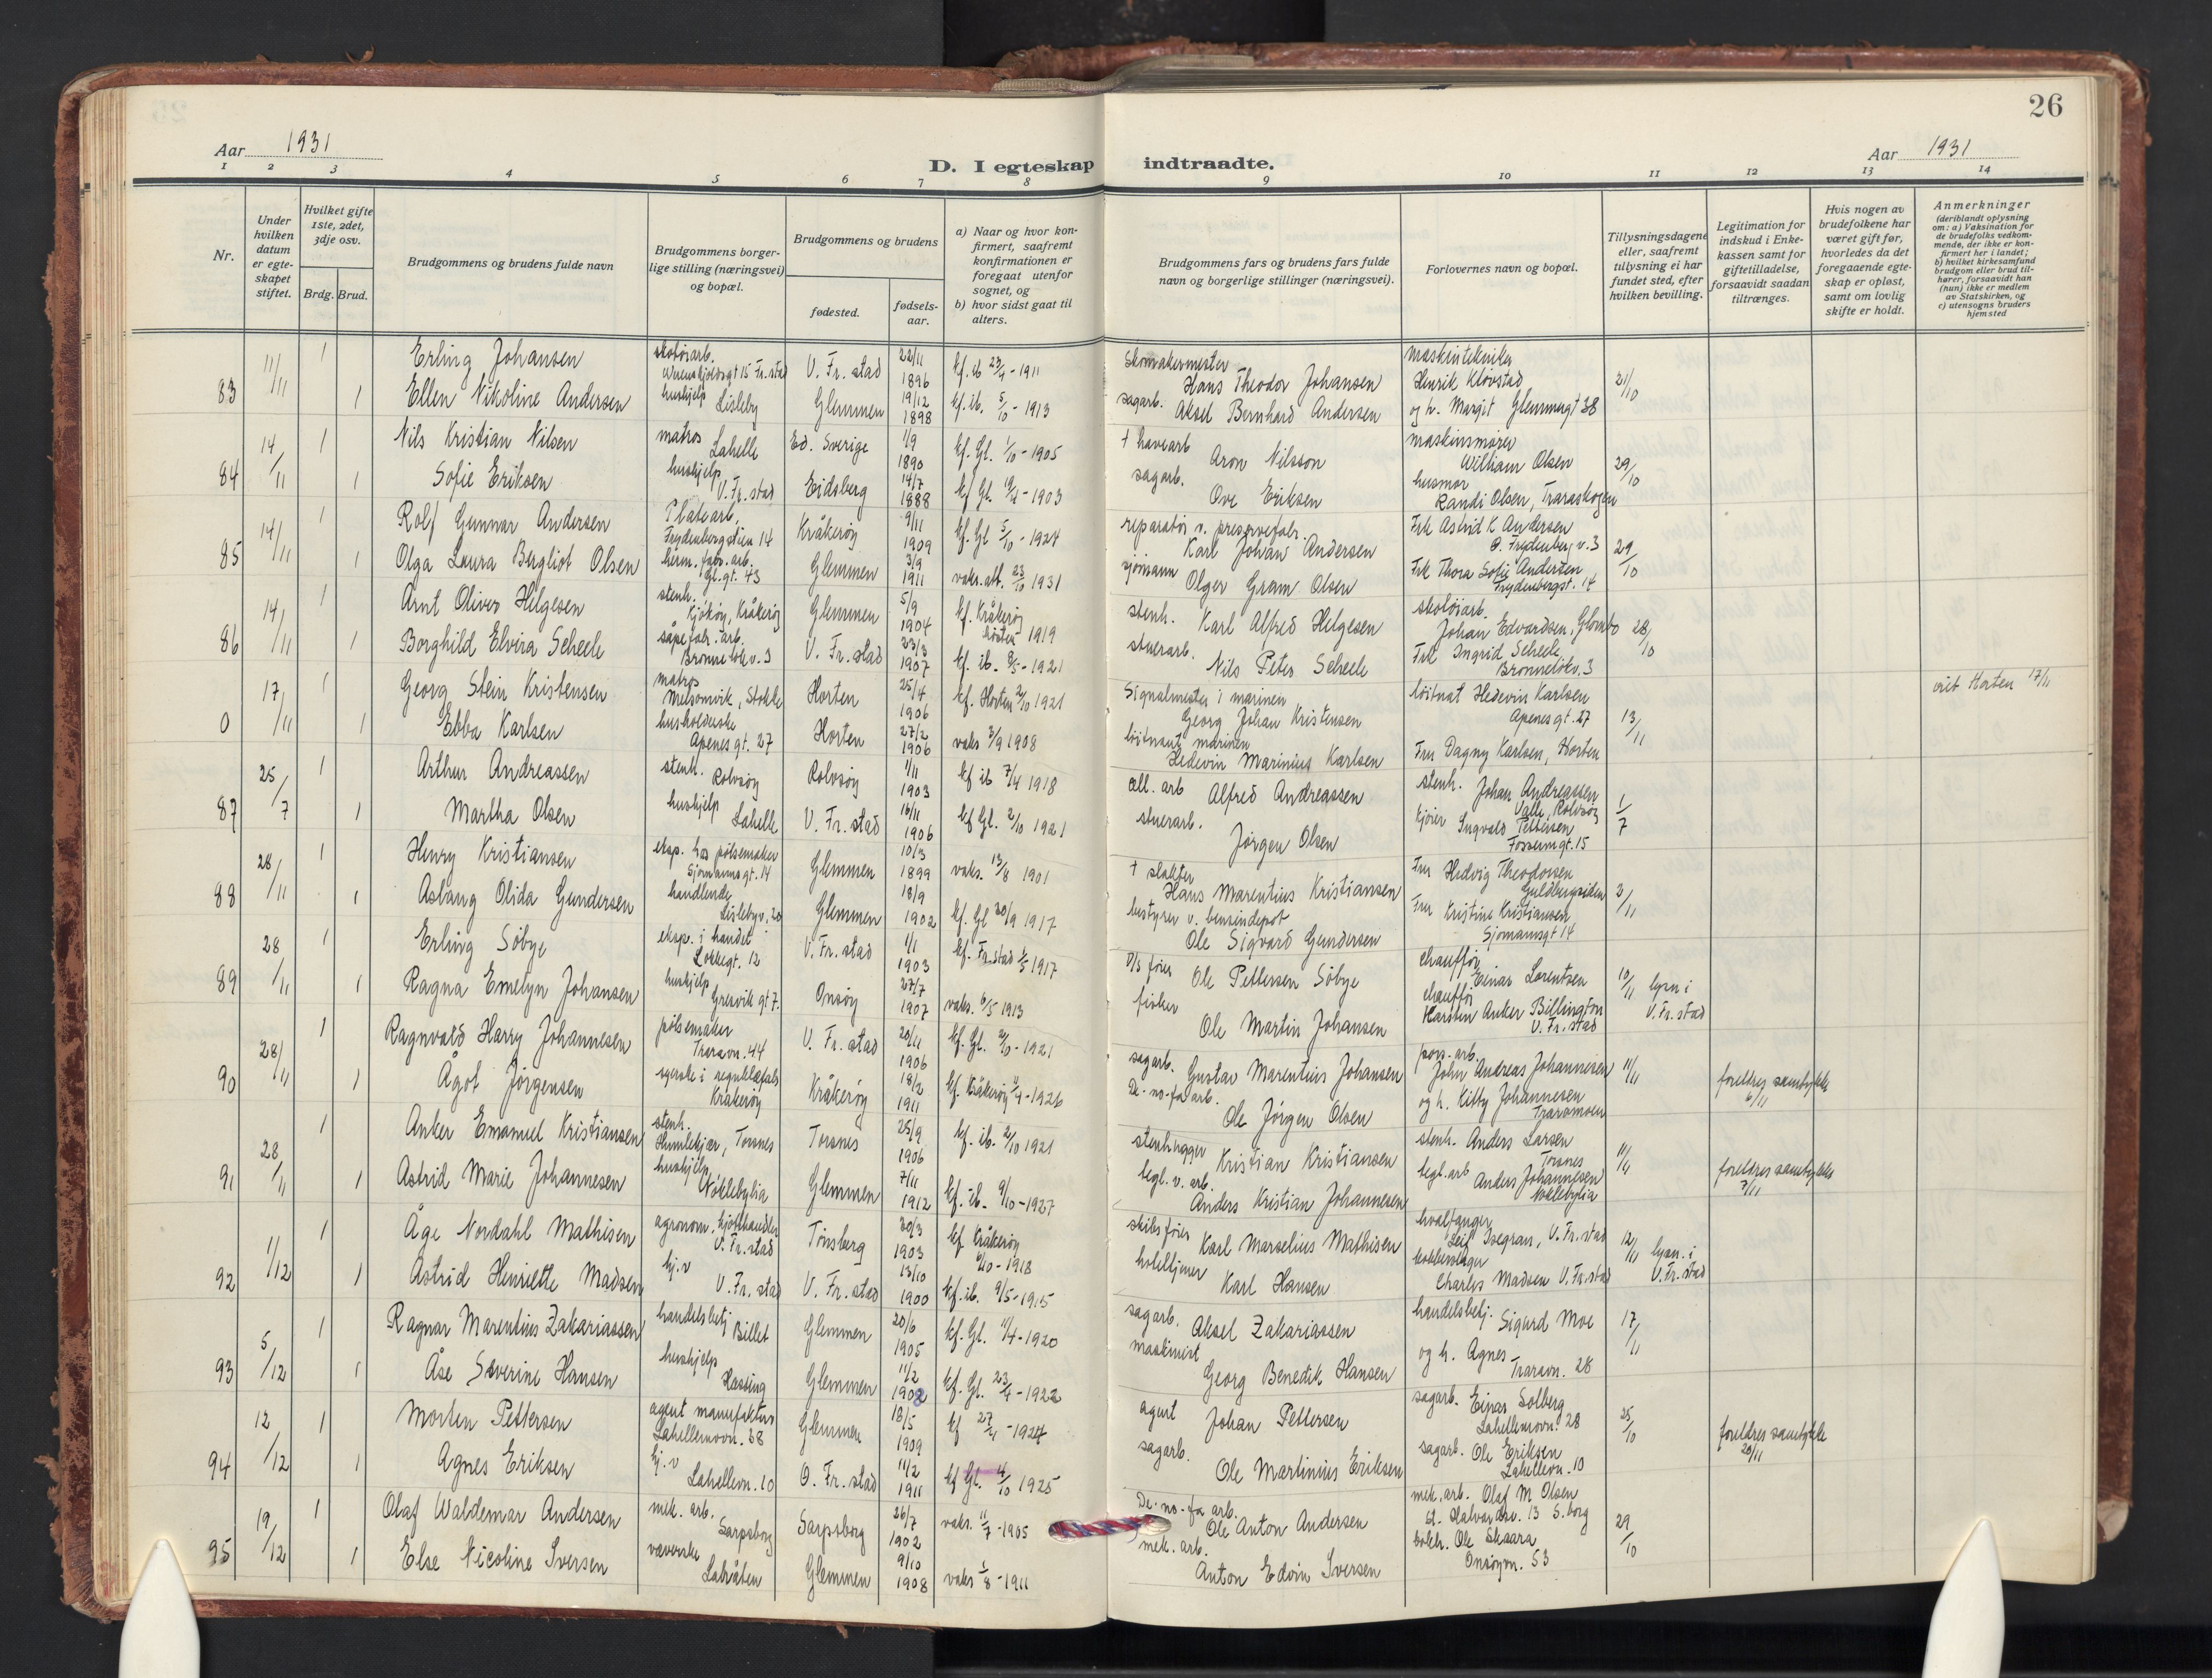 26
Aar 1931
D. I egteskap indtraadte.
Aar 1931
1 2 3 4 5 6 7 8 9 10 11 12 13 14
Nr.
Under hvilken datum er egteskapet stiftet.
Hvilket gifte 1ste, 2det, 3dje osv.
Brdg. Brud.
Brudgommens og brudens fulde navn
Brudgommens borgerlige stilling (næringsvei) og bopæl.
Brudgommens og brudens
fødested.
fødselsaar.
a) Naar og hvor konfirmert, saafremt konfirmationen er foregaat utenfor sognet, og
b) hvor sidst gaat til alters.
Brudgommens fars og brudens fars fulde navn og borgerlige stillinger (næringsvei).
Forlovernes navn og bopæl.
Tillysningsdagene eller, saafremt tillysning ei har fundet sted, efter hvilken bevilling.
Legitimation for indskud i Enkekassen samt for giftetilladelse, forsaavidt saadan tiltrænges.
Hvis nogen av brudefolkene har været gift før, hvorledes da det foregaaende egteskap er opløst, samt om lovlig skifte er holdt.
Anmerkninger
(deriblandt oplysning om: a) Vaksination for de brudefolks vedkommende, der ikke er konfirmert her i landet; b) hvilket kirkesamfund brudgom eller brud tilhører, forsaavidt han (hun) ikke er medlem av Statskirken, og c) utensogns bruders hjemsted
83 11/11 1 Erling Johansen skotøiarb. 15 Fr. stad V. Fr. stad 22/11 1896 kf. ib 23/4 - 1911 Skomakermester Hans Theodor Johansen maskintekniker Henrik Kløvstad 21/10
1 Ellen Nikoline Andersen hushjelp Lisleby Glemmen 19/12 1898 kf. ib. 5/10 - 1913 sagarb. Aksel Bernhard Andersen og h. Margit Glemmengt 38
84 14/11 1 Nils Kristian Nilsen matros Lahelle Ed. Sverige 1/9 1890 kf. Gl. 1/10 - 1905 † havearb Aron Nilsson maskinsmører William Olsen 29/10
1 Sofie Eriksen hushjelp V. Fr. stad Eidsberg 14/7 1888 kf Gl. 19/4 - 1903 sagarb. Ove Eriksen husmor Randi Olsen, Traraskogen
85 14/11 1 Rolf Gunnar Andersen Platearb. Frydenbergstien 14 Kråkerøy 9/11 1909 kf. Gl 5/10 - 1924 reparatør v. preservefabr. Karl Johans Andersen Frk Astrid K Andersen Ø. Frydenberg v. 3 29/10
1 Olga Laura Bergliot Olsen herm. fabr. arb. Gl. gt. 43 Glemmen 3/9 1911 vaks. att. 23/10 1931 sjømann Olger Gram Olsen Frk Thora Sofie Andersen Frydenbergst. 14
86 14/11 1 Arnt Oliver Helgesen stenh. Kjøkøy, Kråkerøy Glemmen 5/9 1904 kf. Kråkerøy høsten 1919 stenh. Karl Alfred Helgesen skotøiarb. Johan Edvardsen, Glombo 28/10
1 Borghild Elvira Scheele såpefabr. arb. Brønneløkv. 3 V. Fr. stad 23/3 1907 kf. ib. 8/5 - 1921 stuerarb. Nils Peter Scheele Frk Ingrid Scheele, Brønneløkv. 3
0 17/11 1 Georg Stein Kristensen matros Melsomvik, Stokke Horten 25/4 1906 kf. Horten 2/10 1921 Signalmester i marinen Georg Johan Kristensen løitnat Hedevin Karlsen Apenes gt. 27 13/11 viet Horten 17/11
1 Ebba Karlsen husholderske Apenes gt. 27 Horten 27/2 1906 vaks 3/9 1908 løitnant marinen Hedevin Marinius Karlsen Fru Dagny Karlsen, Horten
87 25/7 1 Arthur Andreassen stenh. Rolvsøy Rolvsøy 1/11 1903 kf ib 7/4 1918 all. arb Alfred Andreassen stenh. Johan Andreassen Valle, Rolvsøy 1/7
1 Martha Olsen hushjelp Lahelle V. Fr. stad 16/11 1906 kf Gl. 2/10 1921 stuerarb. Jørgen Olsen kjører Ingvald Pettersen Fossumgt. 15
88 28/11 1 Henry Kristiansen eksp. hos pølsemaker Sjømannsgt. 14 Glemmen 10/3 1899 vaks. 13/8 1901 † slakter Hans Marentius Kristiansen Fru Hedvig Theodorsen Guldbergsiden 3/11
1 Aslaug Olida Gundersen handlende Lislebyv. 20 Glemmen 18/9 1902 kf. Gl 30/9 1917 bestyrer v. bensindepot Ole Sigvard Gundersen Fru Kristine Kristiansen Sjømannsgt 14
89 28/11 1 Erling Söbye eksp. i handel Lökkegt. 12 V. Fr. stad 1/1 1903 kf. Fr. stad 6/5 1917 D/S fører Ole Pettersen Söbye chauffør Einar Lorentsen 10/11 lysn i V. Fr. stad
1 Ragna Emelyn Johansen hushjelp Gresvik gt 7. Onsøy 27/7 1907 vaks. 6/5 1913 fisker Ole Martin Johansen chauffør Karsten Anker Billington V. Fr. stad
90 28/11 1 Ragnvald Harry Johannesen pølsemaker Traravn. 44 V. Fr. stad 20/11 1906 kf. Gl. 2/10 - 1921 sagarb. Gustav Marentius Johansen John Andreas Johannesen 11/11 foreldres samtykke 6/11
1 Ågot Jörgensen Kråkerøy Kråkerøy 18/2 1911 kf. Kråkerøy 11/4 - 1926 De-no-fa arb. Ole Jörgen Olsen og h. Kitty Johannesen Traramoen
91 28/11 1 Anker Emanuel Kristiansen stenh. Humlekjær, Torsnes Torsnes 25/9 1906 kf. ib. 2/10 1921 stenhugger Kristian Kristiansen stenh. Anders Larsen Torsnes 11/11 foreldres samtykke 7/11
1 Astrid Marie Johannesen hushjelp Nöklebylia Glemmen 7/11 1912 kf. ib. 9/10 - 1927 tegl. v. arb. Anders Kristian Johannesen tegl. arb Anders Johannesen Nöklebylia
92 1/12 1 Åge Nordahl Mathisen agronom, kjøtthandler V. Fr. stad Tönsberg 30/3 1903 kf Kråkerøy 6/10 - 1918 skibsfører Karl Marselius Mathisen hvalfanger Leif Isegran, V. Fr. stad 12/11 lysn. i V. Fr. stad
1 Astrid Henriette Madsen hj. v V. Fr. stad V. Fr. stad 13/10 1900 kf. ib. 9/5 - 1915 hotelltjener Karl Hansen kobberslager Charles Madsen V. Fr. stad
93 5/12 1 Ragnar Marentius Zakariassen handelsbetj Billet Glemmen 20/6 1905 kf. Gl. 11/4 - 1920 sagarb. Aksel Zakariassen handelsbetj. Sigurd Moe 17/11
1 Åse Severine Hansen hushjelp Hassing Glemmen 11/2 1908 kf. Gl. 23/4 - 1922 maskinist Georg Benedik Hansen og h. Agnes Traravn. 28
94 12/12 1 Morten Pettersen agent manufaktur Lahellemovn. 38 Glemmen 18/5 1909 kf 27/4 - 1924 agent Johan Pettersen sagarb. Einar Solberg Lahellemovn. 28 25/10 foreldres samtykke 20/11
1 Agnes Eriksen hj. v Lahellevn. 10 Ö. Fr. stad 11/2 1911 kf Gl. 4/10 1925 sagarb. Ole Martinius Eriksen sagarb. Ole Eriksen Lahellevn. 10
95 19/12 1 Olaf Waldemar Andersen mek. arb. Sarpsborg Sarpsborg 26/7 1902 vaks. 11/7 - 1905 De-no-fa arb. Ole Anton Andersen mek. arb. Olaf M Olsen St. Halvardsv. 13 S. borg 29/10
1 Else Nicoline Iversen væverske Labråten Glemmen 9/10 1908 vaks 1/8 - 1911 mek. arb. Anton Edvin Iversen bokh. Ole Skaara Onsöyvn. 53